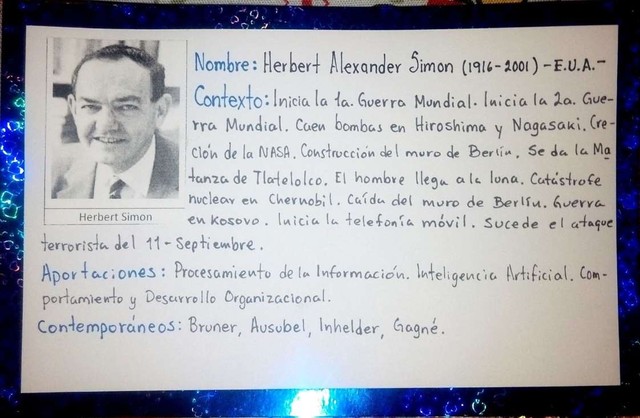 Nombre: Herbert Alexander Simon (1916-2001) - E.U.A.-
Contexto: Inicia la 1a. Guerra Mundial. Inicia la 2a. Gue-
rra Mundial. Caen bombas en Hiroshima y Nagasaki. Cre-
ción de la NASA. Construcción del muro de Berlín. Se da la Ma
tanza de Tlatelolco. El hombre llega a la luna. Catástrofe
nuclear en Chernobil. Caída del muro de Berlín. Guerra
en Kosovo. Inicia la telefonía móvil. Sucede el ataque
Herbert Simon
terrorista del 11-Septiembre.
Aportaciones: Procesamiento de la Información. Inteligencia Artificial. Com-
portamiento y Desarrollo Organizacional.
Contemporáneos: Bruner, Ausubel, Inhelder, Gagné.